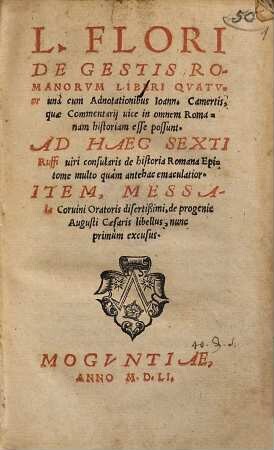 50
L. FLORI
DE GESTIS RO-
MANORVM LIBRI QVATV-
or unà cum Adnotationibus Ioann. Camertis,
quæ Commentarij uice in omnem Roma-
nam historiam esse possunt.
AD HAEC SEXTI
Ruffi uiri consularis de historia Romana Epi-
tome multo quàm antehac emaculatior.
ITEM, MESSA-
la Coruini Oratoris disertißimi, de progenie
Augusti Cæsaris libellus, nunc
primum excusus.
MOGVNTIAE,
ANNO M. D. LI.